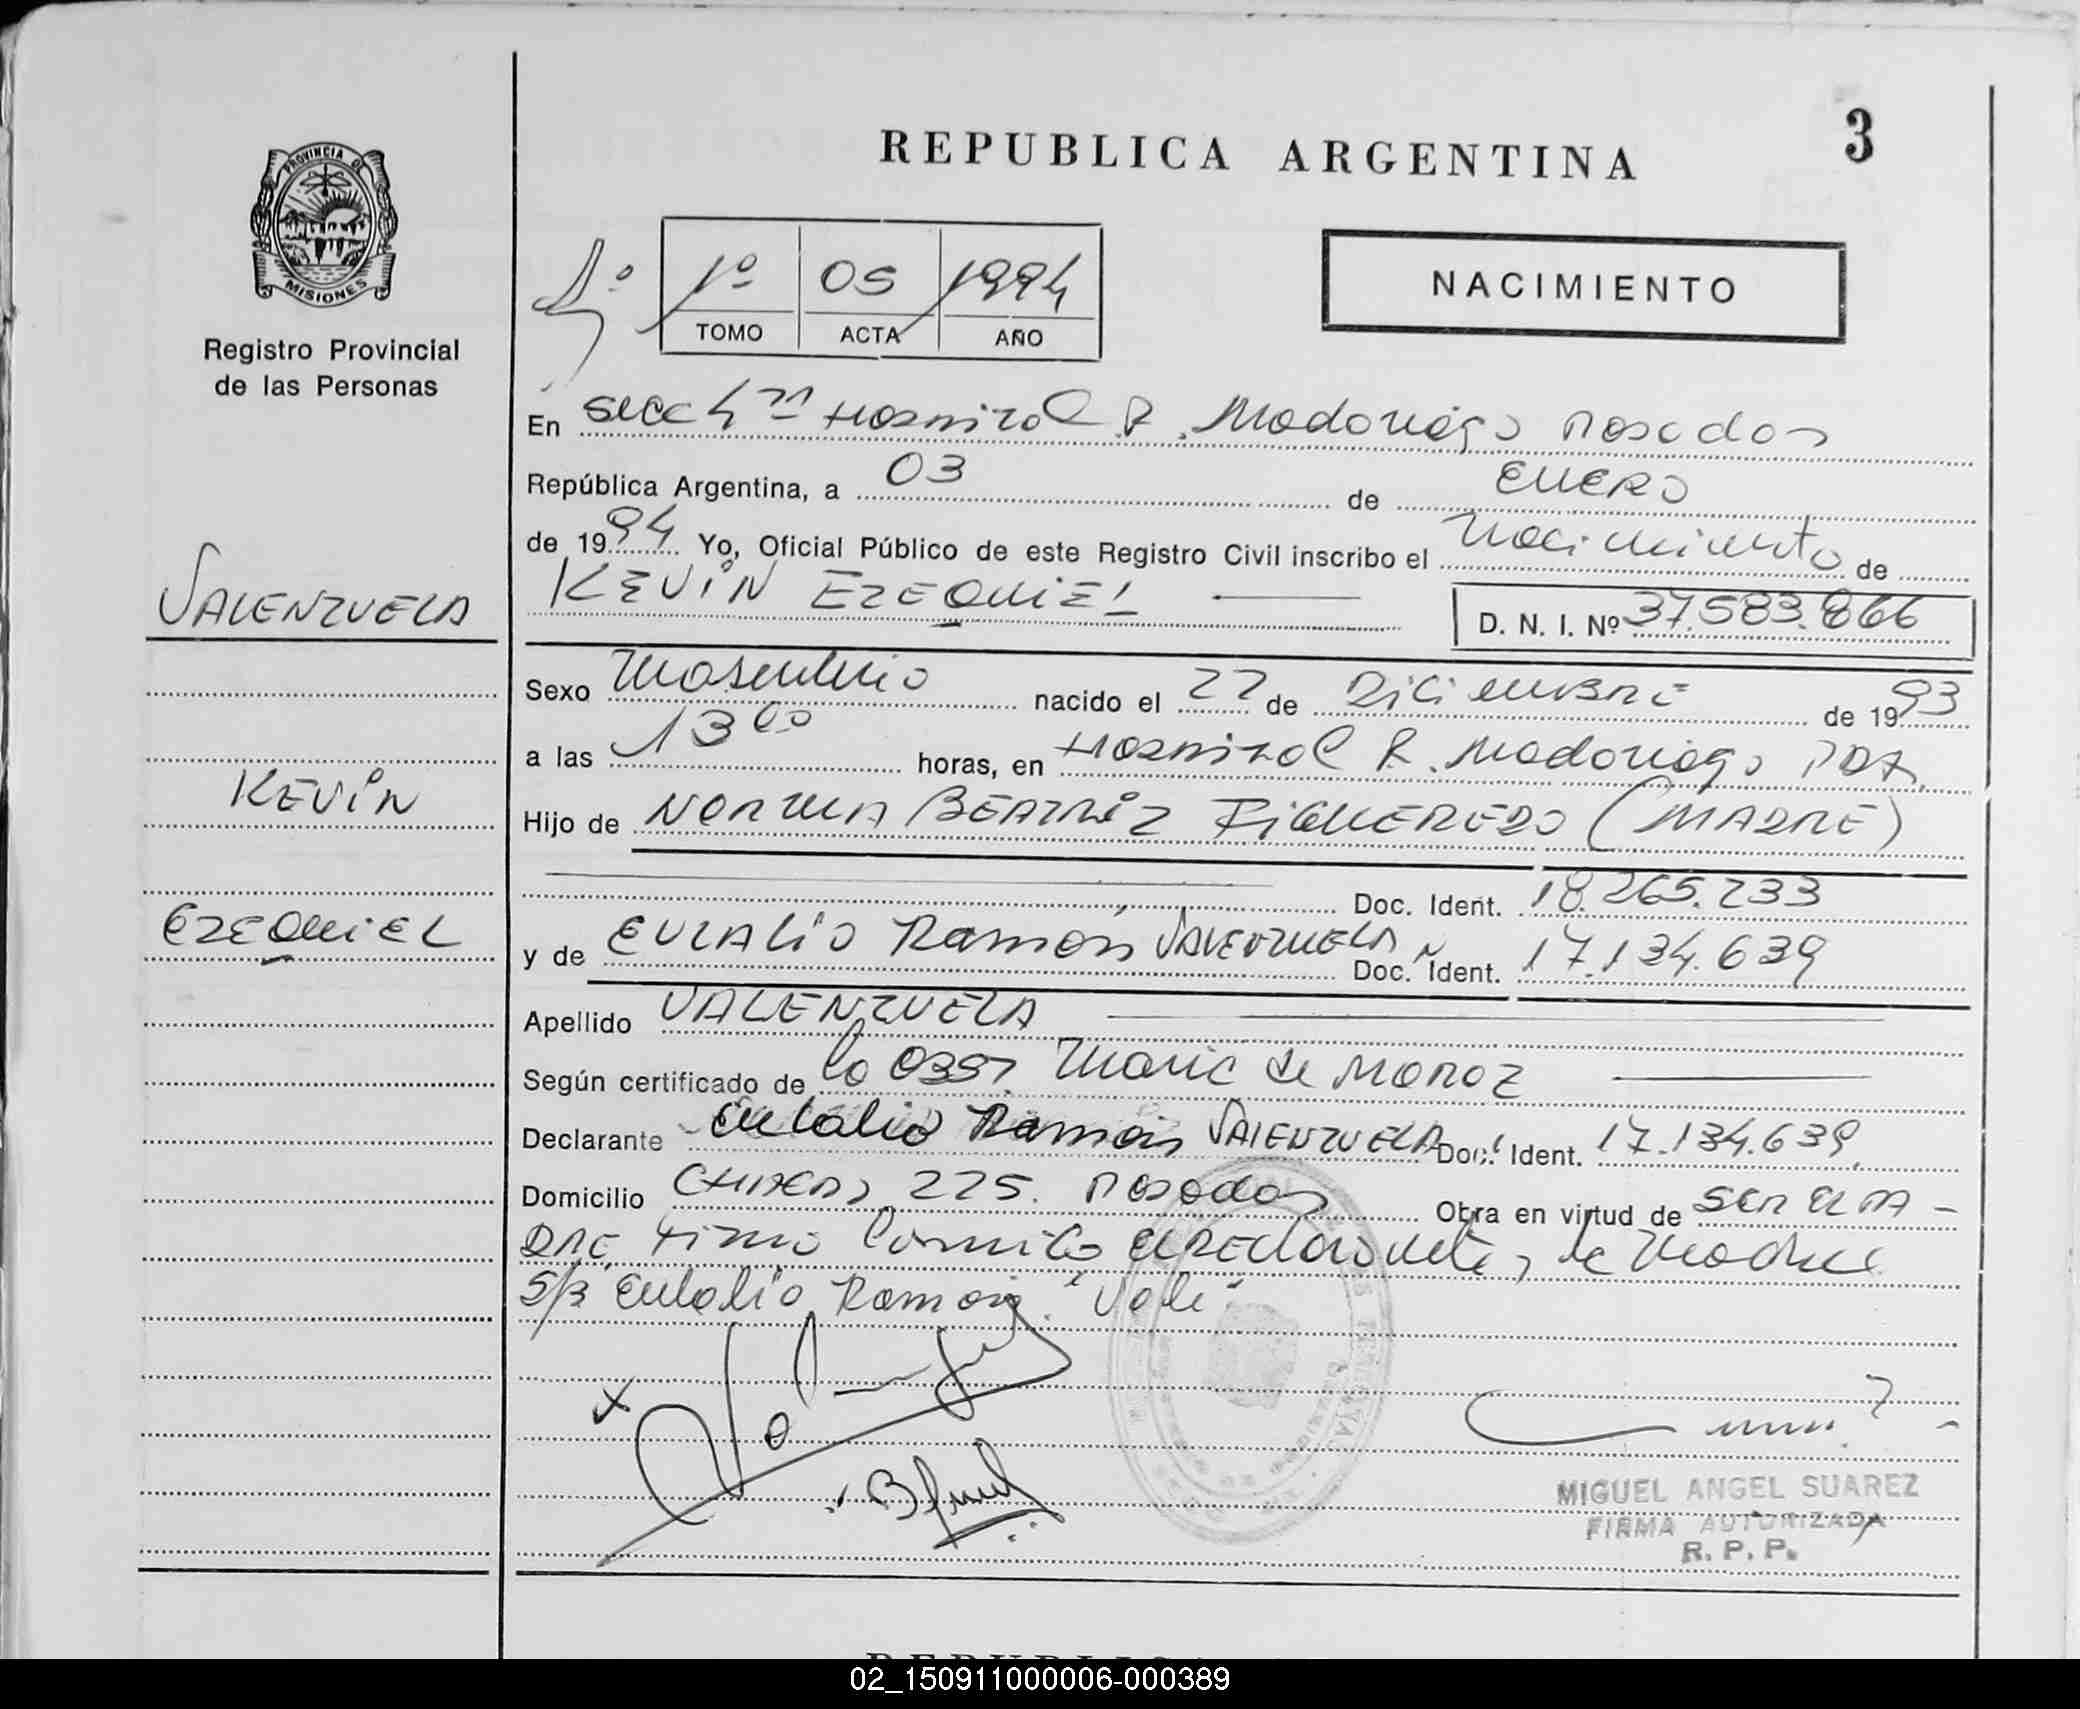 REPUBLICA ARGENTINA
3
PROVINCIA DE
MISIONES
Registro Provincial
de las Personas
4º
1º 05 1994
TOMO ACTA AÑO
NACIMIENTO
En Secc 4ta Hospital R. Madariaga Posadas
República Argentina, a 03 de ENERO
de 1994 Yo, Oficial Público de este Registro Civil inscribo el Nacimiento de
KEVIN EZEQUIEL
D. N. I. Nº 37.583.866
VALENZUELA
KEVIN
EZEQUIEL
Sexo Masculino nacido el 22 de DICIEMBRE de 1993
a las 13 00 horas, en Hospital R. Madariaga PDAS.
Hijo de NORMA BEATRIZ FIGUEREDO (MADRE)
Doc. Ident. 18.265.233
y de EULALIO Ramón VALENZUELA Doc. Ident. 17.134.639
Apellido VALENZUELA
Según certificado de la Obst. Maria de MOROZ
Declarante Eulalio Ramón VALENZUELA Doc. Ident. 17.134.639
Domicilio 225. Posadas Obra en virtud de SER EL PA-
DRE, Firma el declarante, la Madre
S/B Eulalio Ramón. "Vale"
MIGUEL ANGEL SUAREZ
FIRMA AUTORIZADA
R. P. P.
02_150911000006-000389